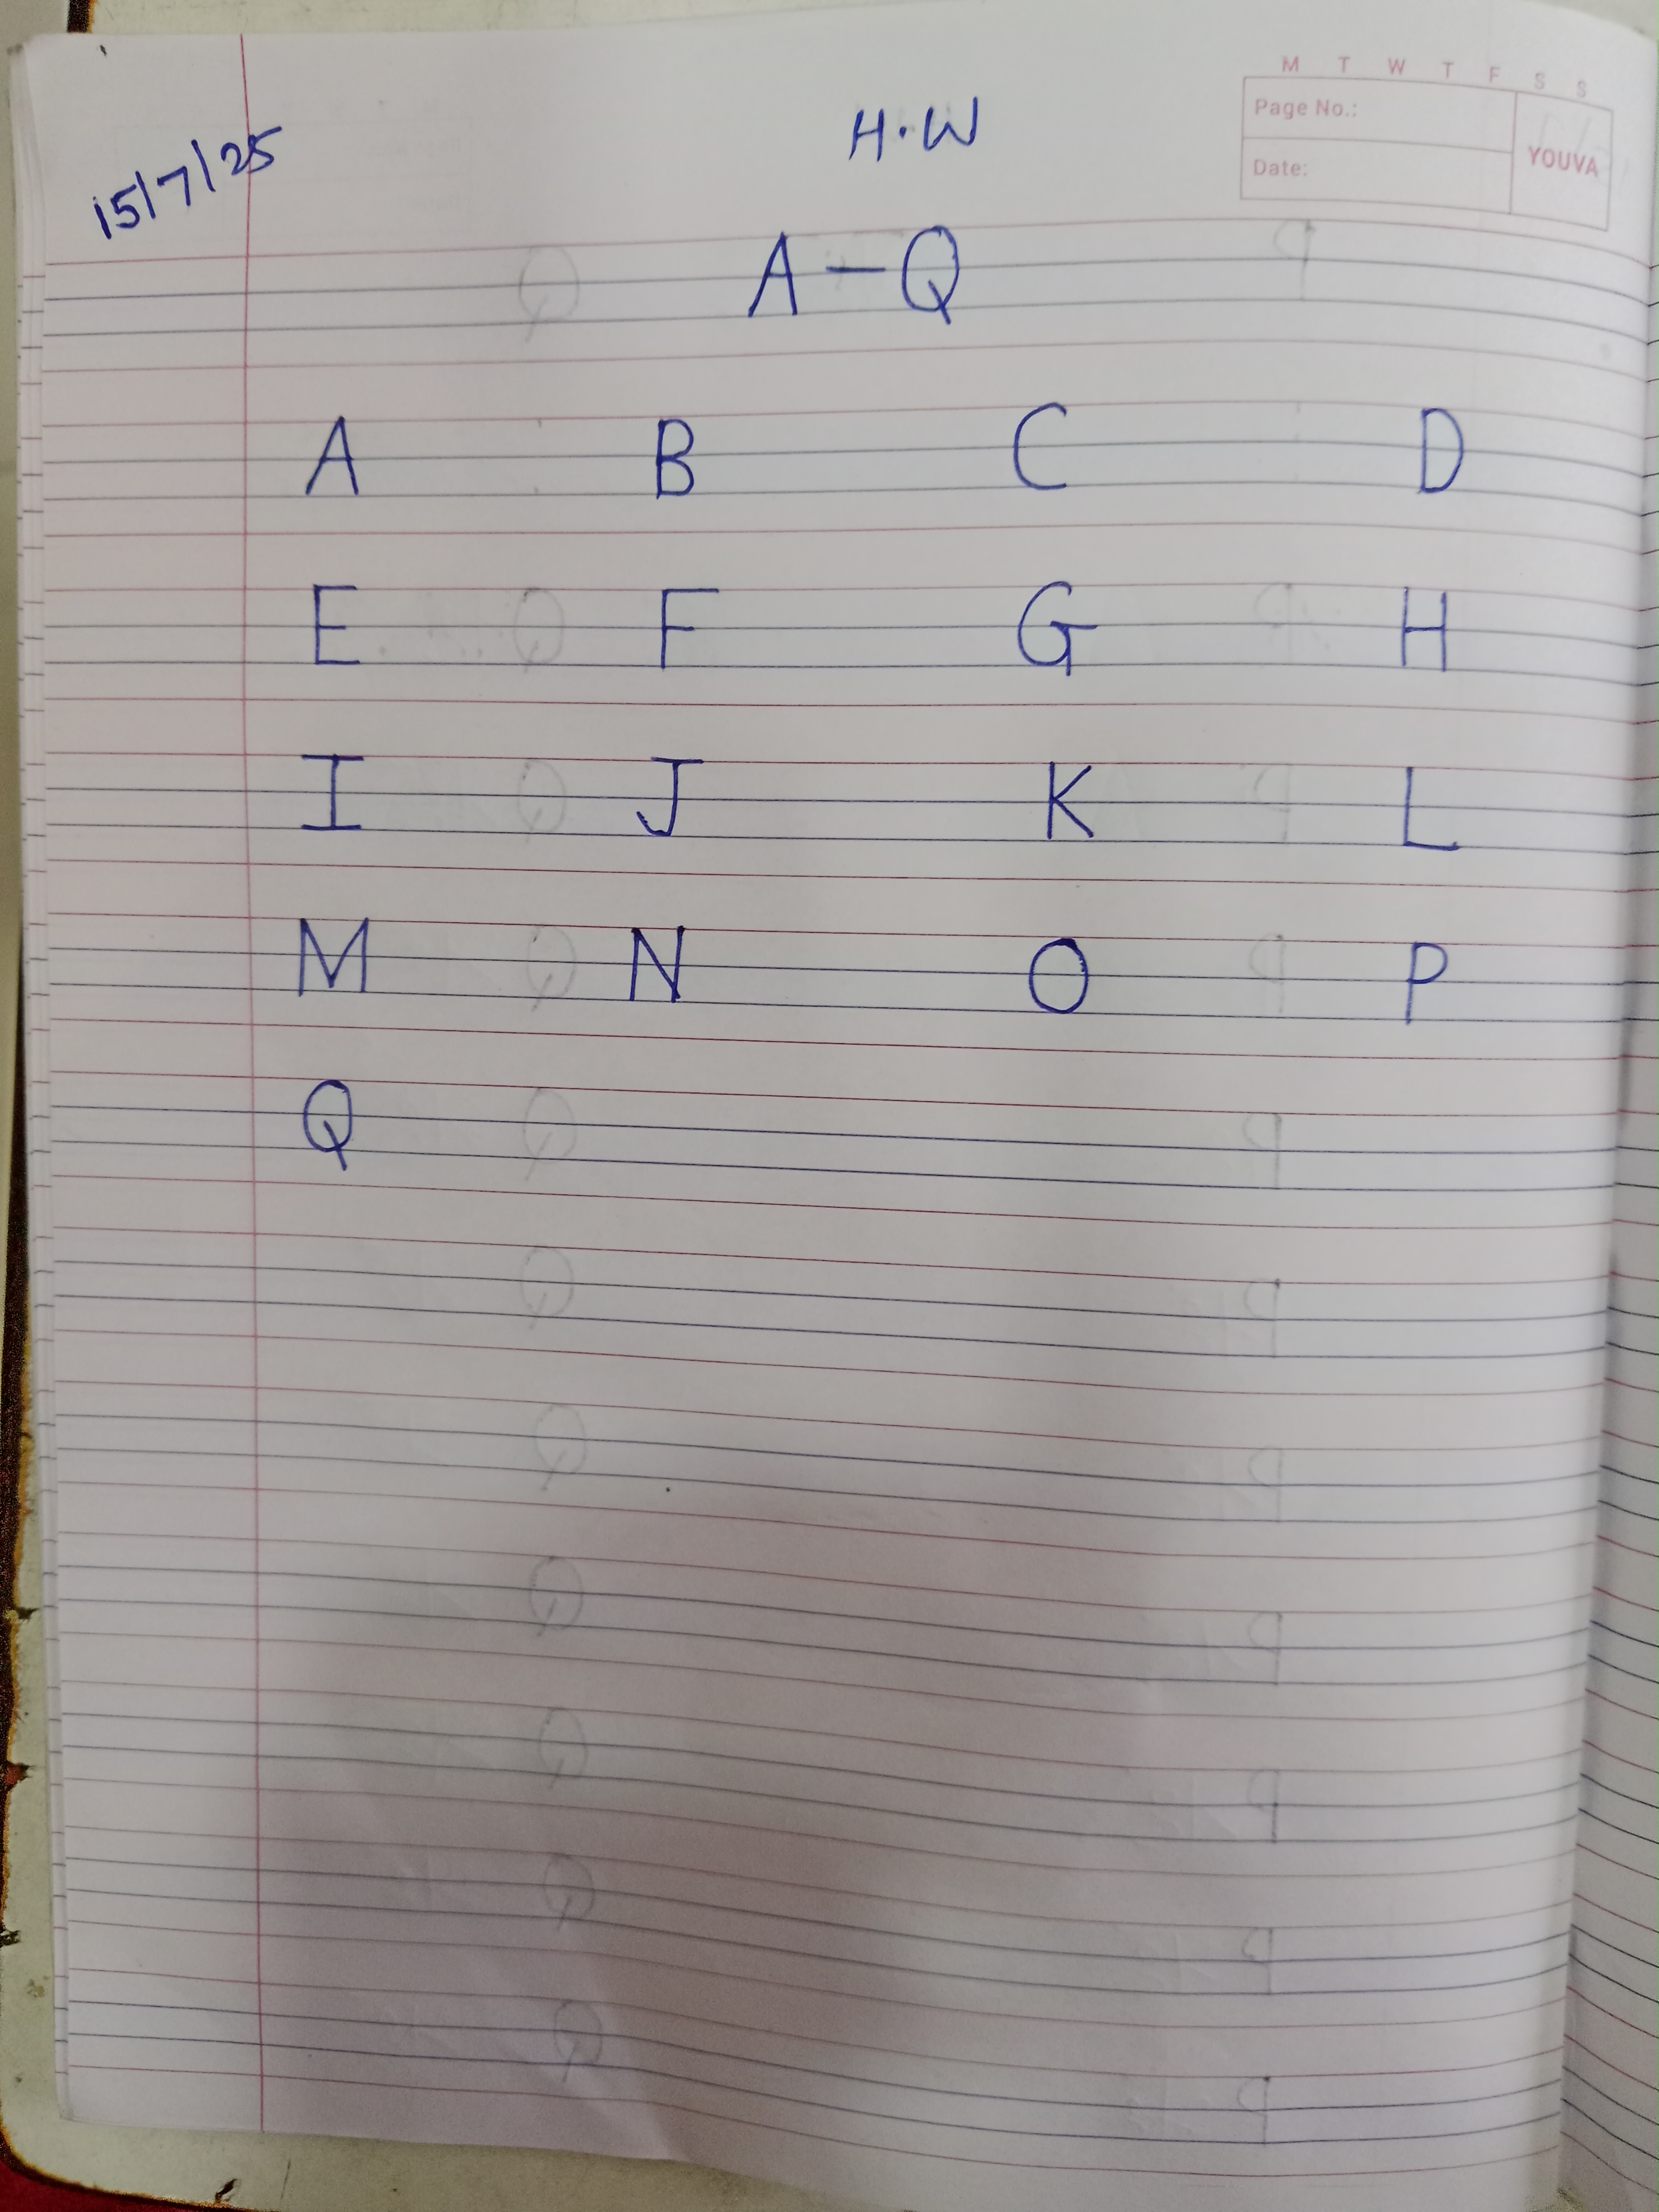 M T W T F S S
Page No.:
Date:
YOUVA
15/7/25
H.W
A-Q
A B C D
E F G H
I J K L
M N O P
Q